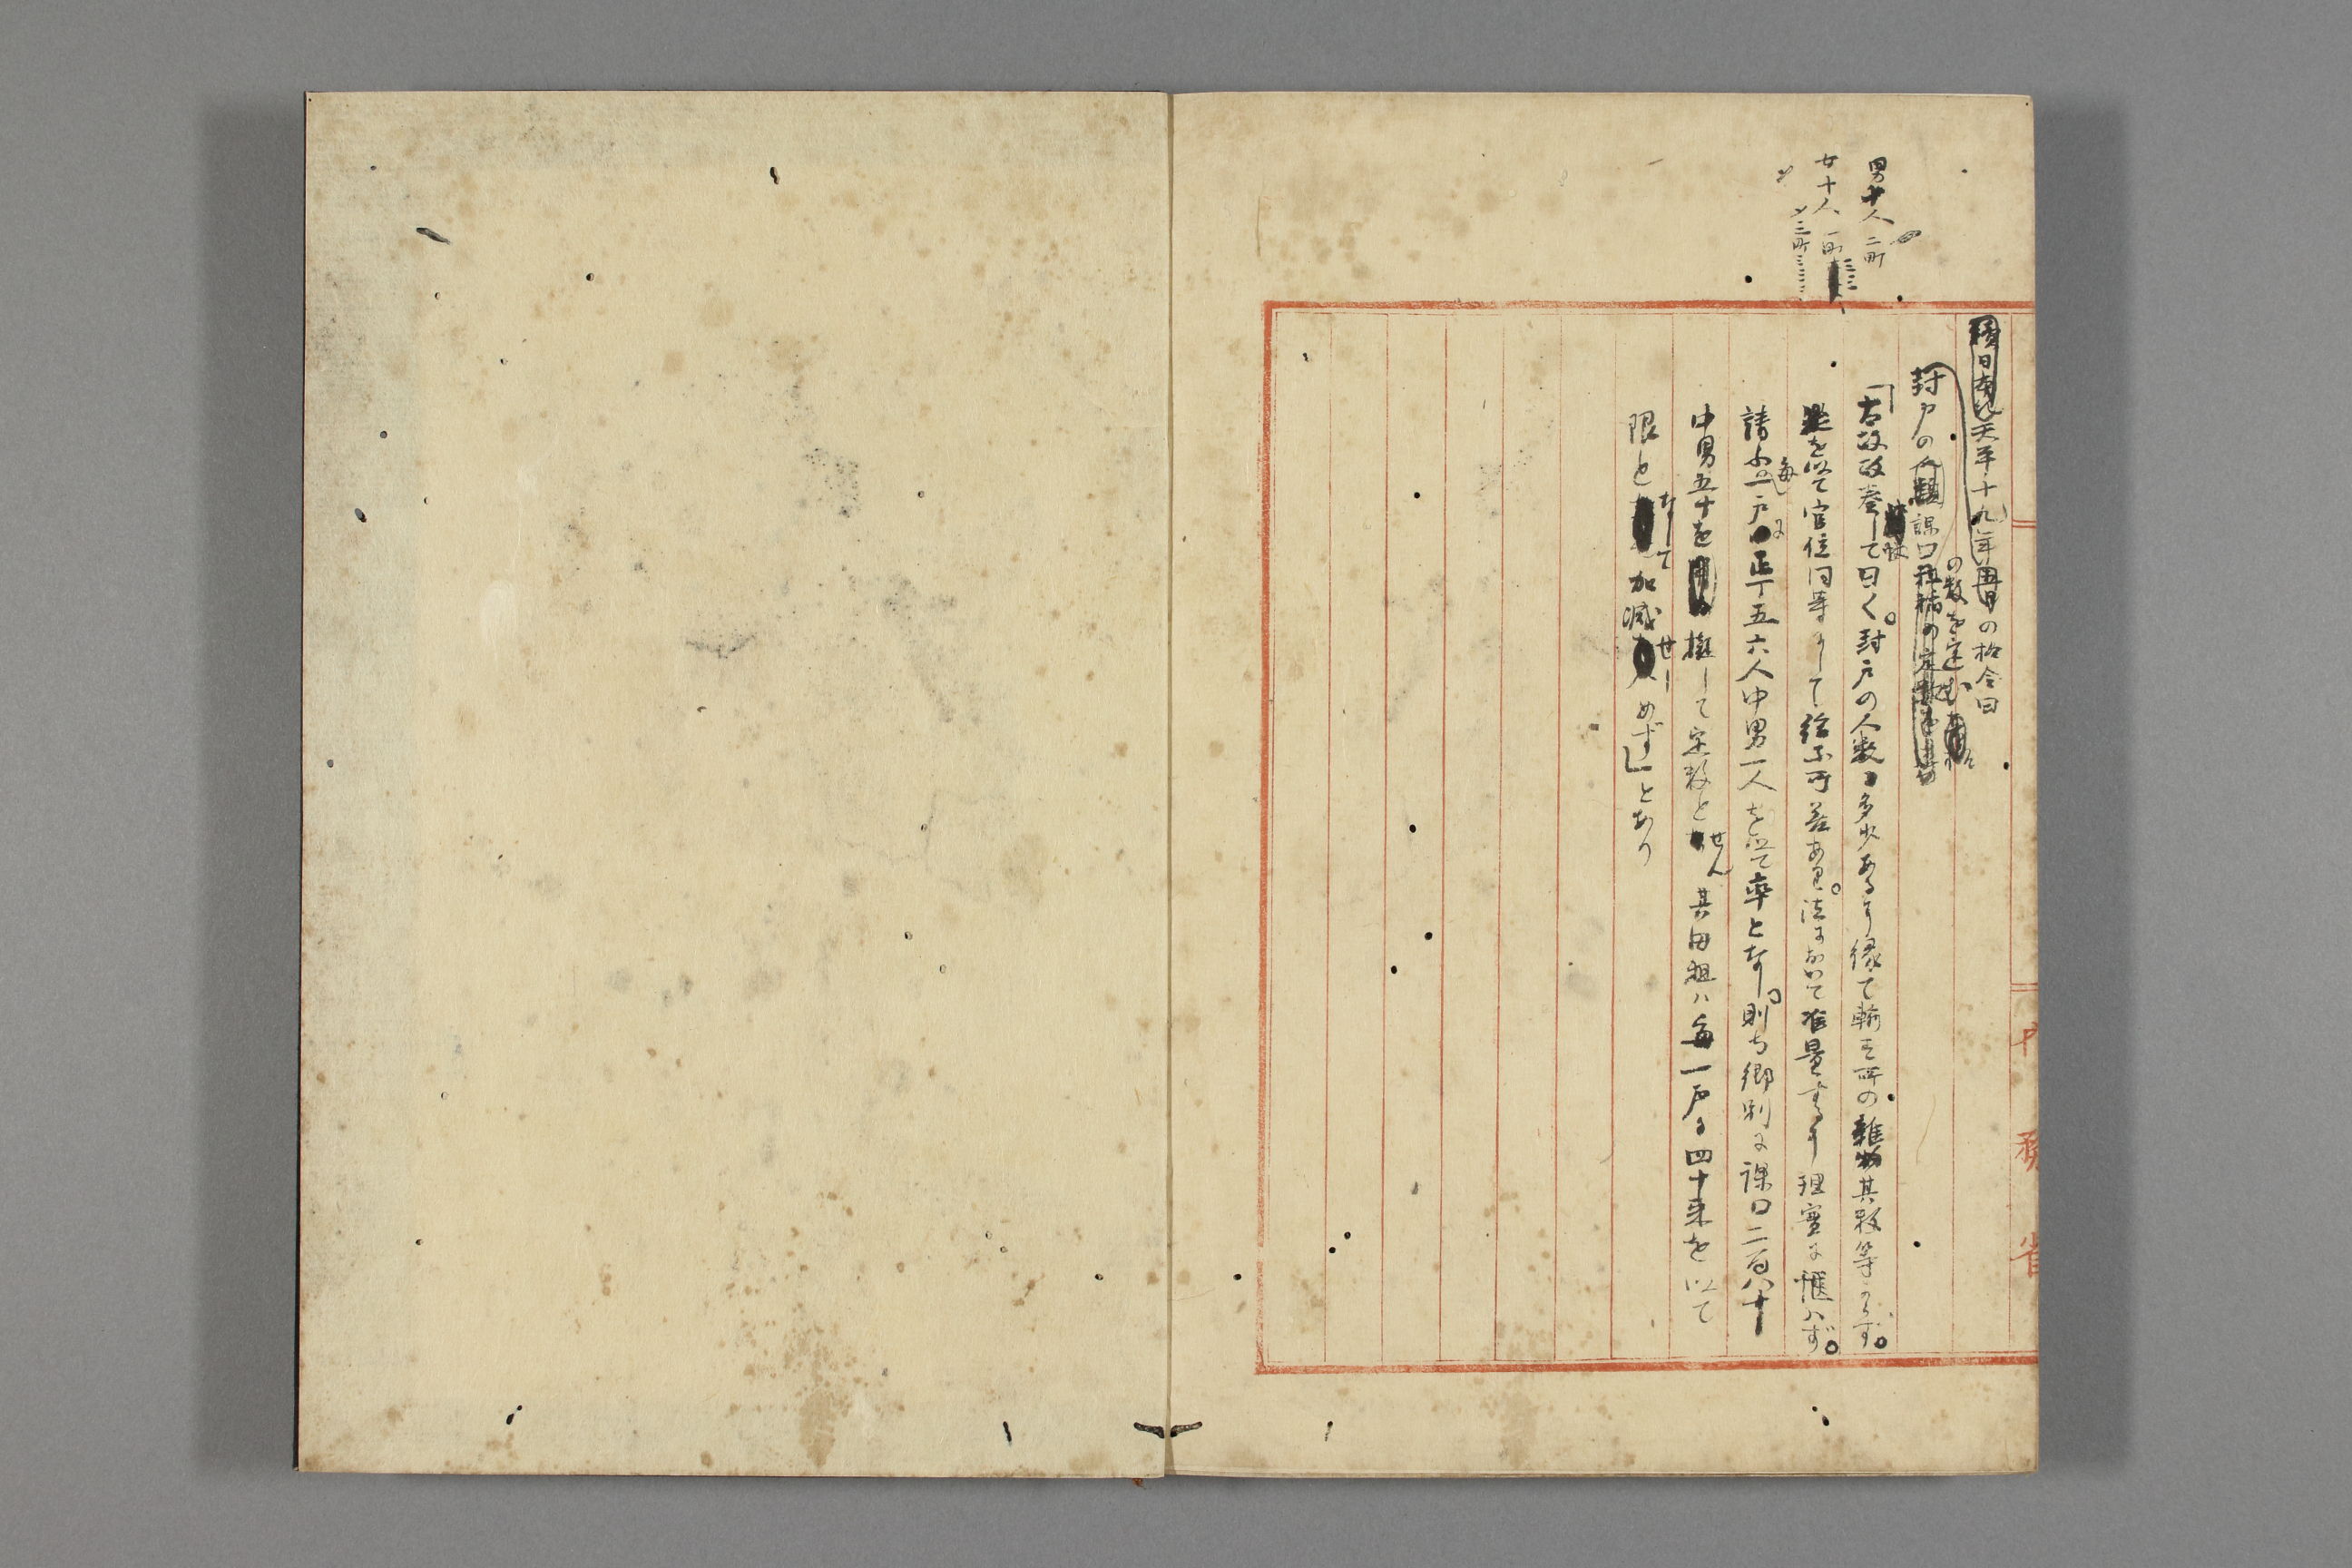 男十人 二町
女十人 一町
〻三町
續日本紀天平十九年の格令曰
封戸の人額課口の数を定む
「太政官奏して曰く。封戸の人数多少あるより縁て輸す所の雜物其数等からず。
是を以て官位同等にして給ふ所差あり。法において准量するに理實に愜ハず。
請ふ毎一戸に正丁五六人中男一人を以て率となし。則ち郷別に課口二百八十
中男五十を擬して定数とせん其田租ハ毎一戸に四十束を以て
限となして加減せしめず」とあり
内務省